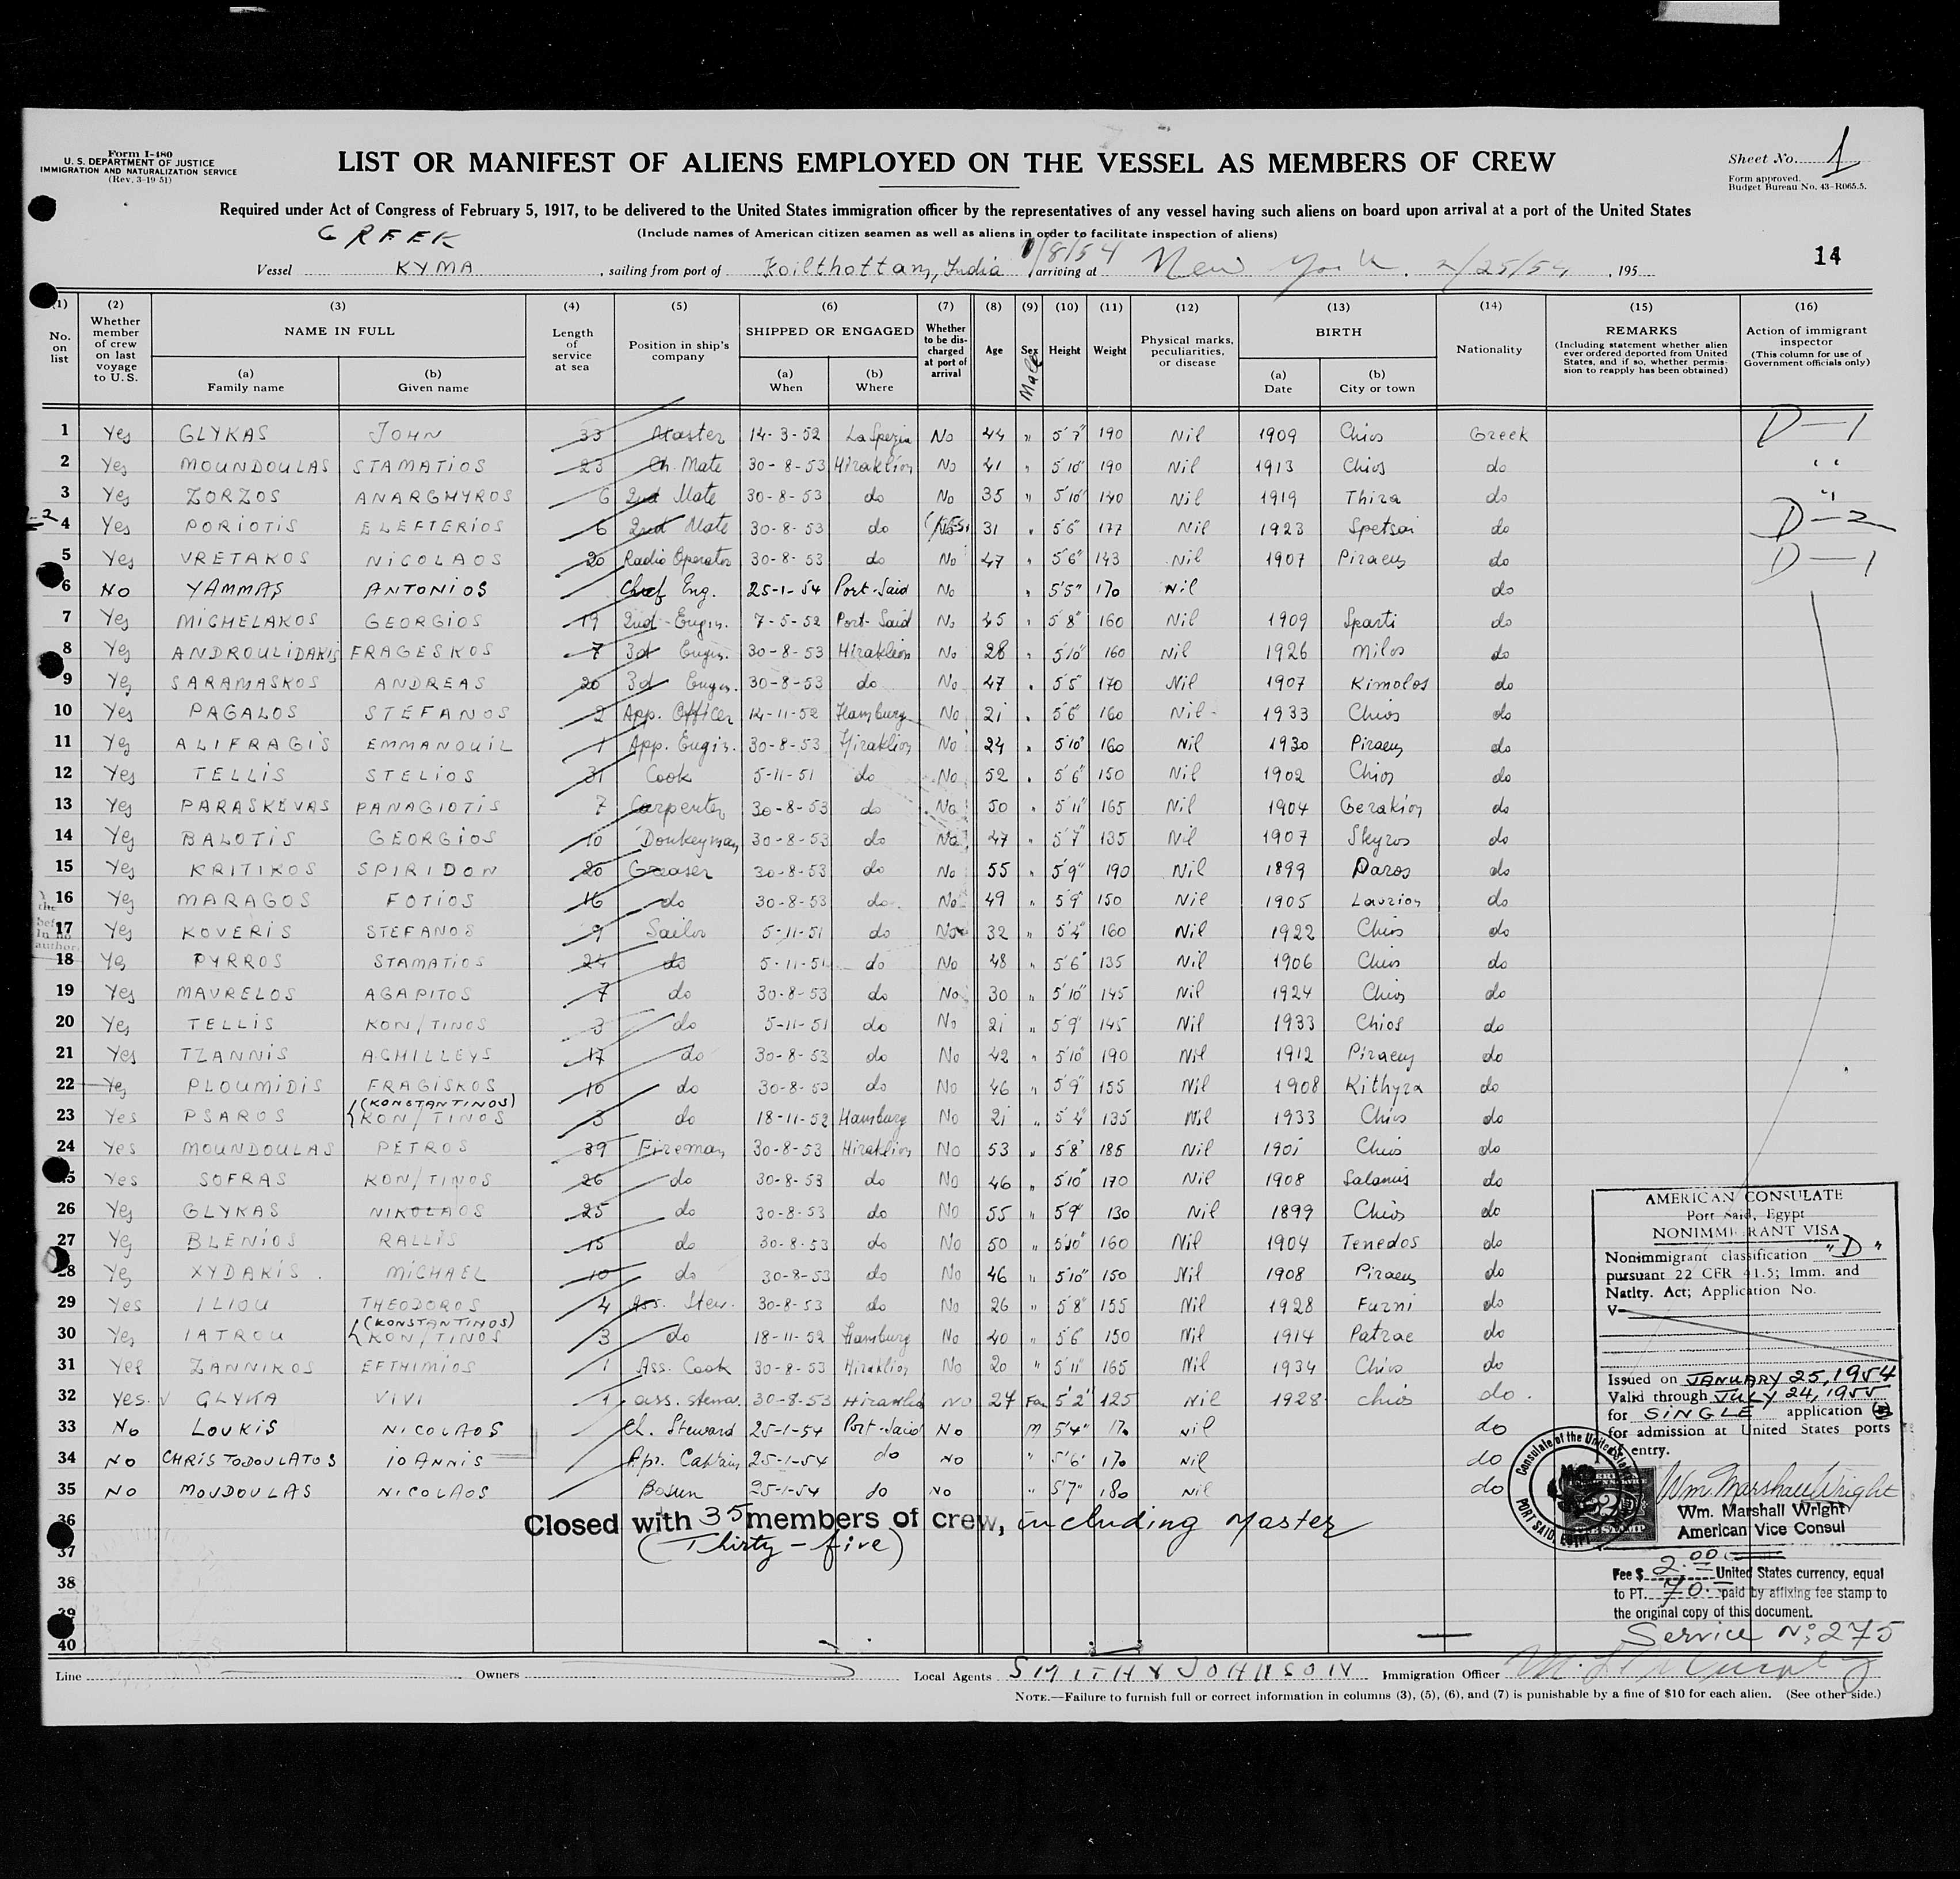 Form I-480
U. S. DEPARTMENT OF JUSTICE
IMMIGRATION AND NATURALIZATION SERVICE
(Rev. 3-19-51)
LIST OR MANIFEST OF ALIENS EMPLOYED ON THE VESSEL AS MEMBERS OF CREW
Sheet No. 1
Form approved.
Budget Bureau No. 43-R065.5.
Required under Act of Congress of February 5, 1917, to be delivered to the United States immigration officer by the representatives of any vessel having such aliens on board upon arrival at a port of the United States
(Include names of American citizen seamen as well as aliens in order to facilitate inspection of aliens)
GREEK
14
Vessel KYMA, sailing from port of Koilthottam, India 1/8/54 arriving at New York. 2/25/54, 195
(1) No. on list
(2) Whether member of crew on last voyage to U. S.
(3) NAME IN FULL (a) Family name (b) Given name
(4) Length of service at sea
(5) Position in ship's company
(6) SHIPPED OR ENGAGED (a) When (b) Where
(7) Whether to be discharged at port of arrival
(8) Age
(9) Sex Male
(10) Height
(11) Weight
(12) Physical marks, peculiarities, or disease
(13) BIRTH (a) Date (b) City or town
(14) Nationality
(15) REMARKS (Including statement whether alien ever ordered deported from United States, and if so, whether permission to reapply has been obtained)
(16) Action of immigrant inspector (This column for use of Government officials only)
1 Yes GLYKAS JOHN 33 Master 14-3-52 La Spezia No 44 " 5'7" 190 Nil 1909 Chios Greek D-1
2 Yes MOUNDOULAS STAMATIOS 23 Ch. Mate 30-8-53 Hiraklion No 41 " 5'10" 190 Nil 1913 Chios do "
3 Yes ZORZOS ANARGHYROS 6 2nd Mate 30-8-53 do No 35 " 5'10" 140 Nil 1919 Thira do "
4 Yes PORIOTIS ELEFTERIOS 6 2nd Mate 30-8-53 do 31 " 5'6" 177 Nil 1923 Spetsai do D-2
5 Yes VRETAKOS NICOLAOS 20 Radio Operator 30-8-53 do No 47 " 5'6" 143 Nil 1907 Piraeus do D-1
6 No YAMMAS ANTONIOS Chief Eng. 25-1-54 Port-Said No " 5'5" 170 Nil do
7 Yes MICHELAKOS GEORGIOS 19 2nd-Engin. 7-5-52 Port-Said No 45 " 5'8" 160 Nil 1909 Sparti do
8 Yes ANDROULIDAKIS FRAGESKOS 7 3d Engin. 30-8-53 Hiraklion No 28 " 5'10" 160 Nil 1926 Milos do
9 Yes SARAMASKOS ANDREAS 20 3d Engin. 30-8-53 do No 47 " 5'5" 170 Nil 1907 Kimolos do
10 Yes PAGALOS STEFANOS 2 App. Officer 14-11-52 Hamburg No 21 " 5'6" 160 Nil 1933 Chios do
11 Yes ALIFRAGIS EMMANOUIL 1 App. Engin. 30-8-53 Hiraklion No 24 " 5'10" 160 Nil 1930 Piraeus do
12 Yes TELLIS STELIOS 31 Cook 5-11-51 do No 52 " 5'6" 150 Nil 1902 Chios do
13 Yes PARASKEVAS PANAGIOTIS 7 Carpenter 30-8-53 do No 50 " 5'11" 165 Nil 1904 Gerakion do
14 Yes BALOTIS GEORGIOS 10 Donkeyman 30-8-53 do No 47 " 5'7" 135 Nil 1907 Skyros do
15 Yes KRITIKOS SPIRIDON 20 Greaser 30-8-53 do No 55 " 5'9" 190 Nil 1899 Paros do
16 Yes MARAGOS FOTIOS 16 do 30-8-53 do No 49 " 5'9" 150 Nil 1905 Lavrion do
17 Yes KOVERIS STEFANOS 9 Sailor 5-11-51 do No 32 " 5'4" 160 Nil 1922 Chios do
18 Yes PYRROS STAMATIOS 24 do 5-11-51 do No 48 " 5'6" 135 Nil 1906 Chios do
19 Yes MAVRELOS AGAPITOS 7 do 30-8-53 do No 30 " 5'10" 145 Nil 1924 Chios do
20 Yes TELLIS KON/TINOS 3 do 5-11-51 do No 21 " 5'9" 145 Nil 1933 Chios do
21 Yes TZANNIS ACHILLEYS 17 do 30-8-53 do No 42 " 5'10" 190 Nil 1912 Piraeus do
22 Yes PLOUMIDIS FRAGISKOS 10 do 30-8-53 do No 46 " 5'9" 155 Nil 1908 Kithyra do
23 Yes PSAROS (KONSTANTINOS) KON/TINOS 3 do 18-11-52 Hamburg No 21 " 5'4" 135 Nil 1933 Chios do
24 Yes MOUNDOULAS PETROS 39 Fireman 30-8-53 Hiraklion No 53 " 5'8" 185 Nil 1901 Chios do
25 Yes SOFRAS KON/TINOS 26 do 30-8-53 do No 46 " 5'10" 170 Nil 1908 Salamis do
26 Yes GLYKAS NIKOLAOS 25 do 30-8-53 do No 55 " 5'9" 130 Nil 1899 Chios do
27 Yes BLENIOS RALLIS 15 do 30-8-53 do No 50 " 5'10" 160 Nil 1904 Tenedos do
28 Yes XYDAKIS MICHAEL 10 do 30-8-53 do No 46 " 5'10" 150 Nil 1908 Piraeus do
29 Yes ILIOU THEODOROS 4 Ass. Stew. 30-8-53 do No 26 " 5'8" 155 Nil 1928 Furni do
30 Yes IATROU (KONSTANTINOS) KON/TINOS 3 do 18-11-52 Hamburg No 40 " 5'6" 150 Nil 1914 Patrae do
31 Yes ZANNIKOS EFTHIMIOS 1 Ass. Cook 30-8-53 Hiraklion No 20 " 5'11" 165 Nil 1934 Chios do
32 Yes. GLYKA VIVI 1 ass. stewa. 30-8-53 No 27 Fem 5'2" 125 Nil 1928 Chios do.
33 No LOUKIS NICOLAOS Ch. Steward 25-1-54 Port-Said No M 5'4" 170 Nil do
34 No CHRISTODOULATOS IOANNIS Apr. Captain 25-1-54 do No " 5'6" 170 Nil do
35 No MOUDOULAS NICOLAOS Bosun 25-1-54 do No " 5'7" 180 Nil do
36 Closed with 35 members of crew, including Master
37 (Thirty-five)
38
39
40
AMERICAN CONSULATE
Port Said, Egypt
NONIMMIGRANT VISA
Nonimmigrant classification "D"
pursuant 22 CFR 41.5; Imm. and
Natlty. Act; Application No.
V
Issued on JANUARY 25, 1954
Valid through JULY 24, 1955
for SINGLE application
for admission at United States ports
of entry.
Consulate of the United States
PORT SAID, EGYPT
Wm. Marshall Wright
Wm. Marshall Wright
American Vice Consul
Fee $ 2.00 United States currency, equal
to PT. 70.- paid by affixing fee stamp to
the original copy of this document.
Service No: 275
Line Owners Local Agents SMITH & JOHNSON Immigration Officer
NOTE.—Failure to furnish full or correct information in columns (3), (5), (6), and (7) is punishable by a fine of $10 for each alien. (See other side.)